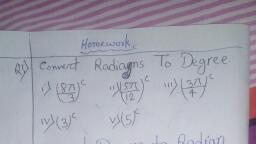 Homework
Q1) Convert Radians To Degree
i) (8π/3)ᶜ ii) (5π/12)ᶜ iii) (3π/4)ᶜ
iv) (3)ᶜ v) (5)ᶜ
Radian